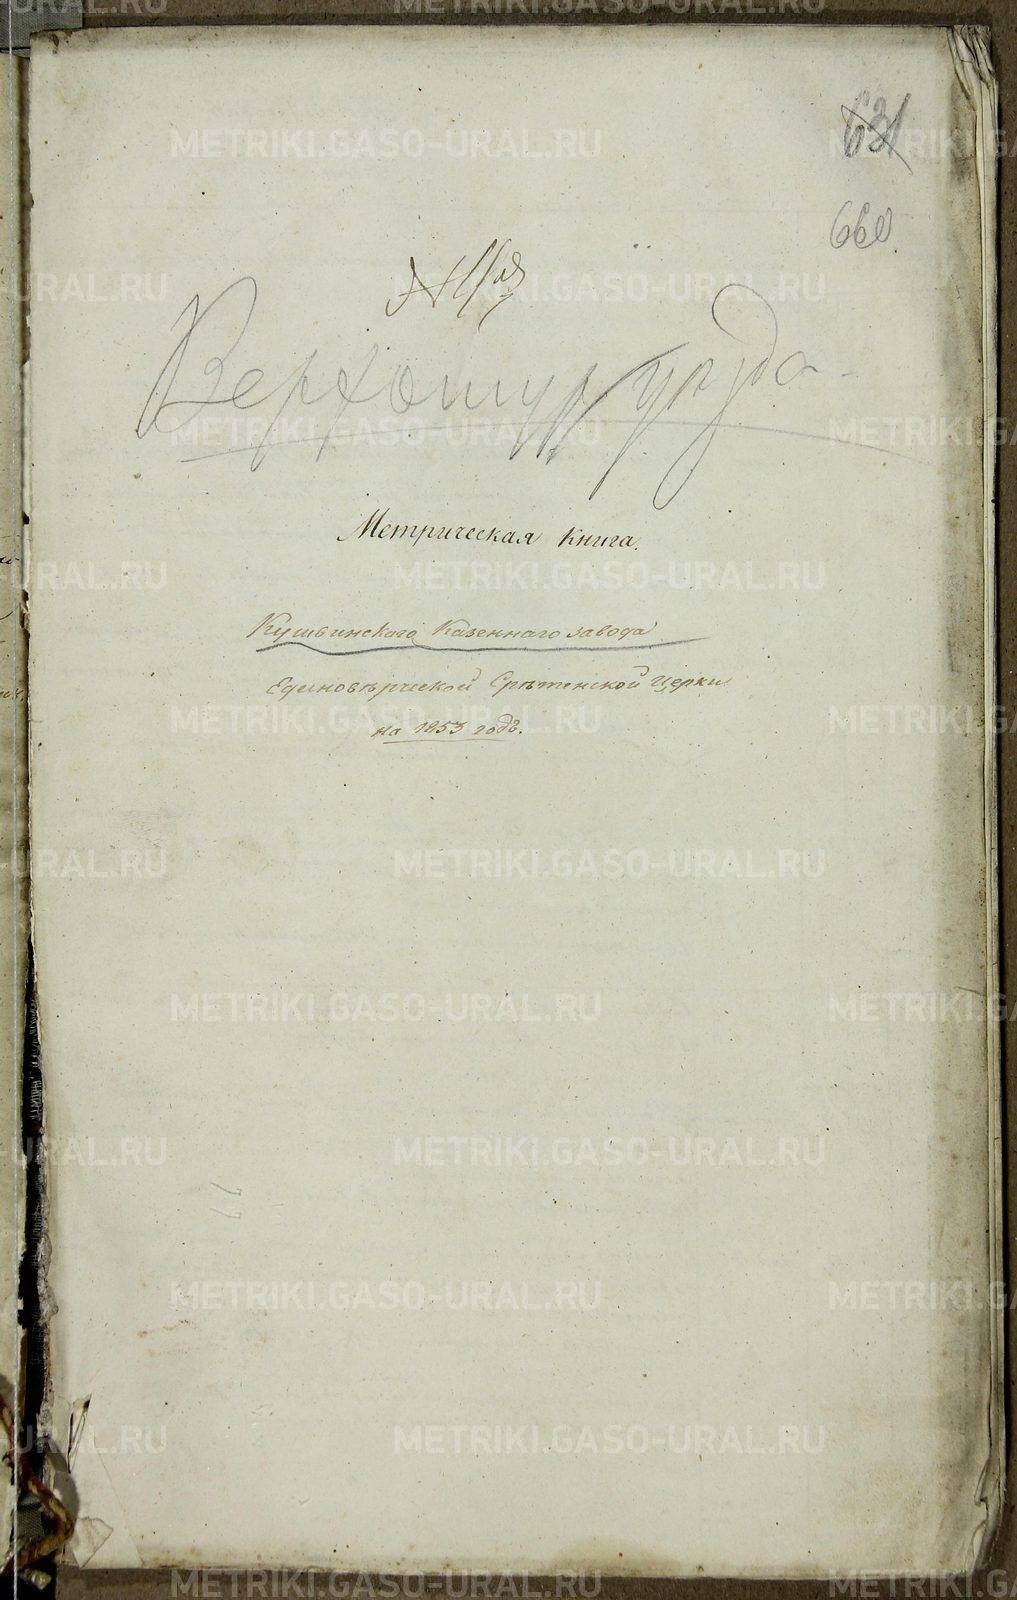 631
660
Верхотур уѣзда
Метрическая Книга.
Кушвинскаго Казеннаго завода
Единовѣрческой Срѣтенской Церкви
на 1853 годъ.
METRIKI.GASO-URAL.RU